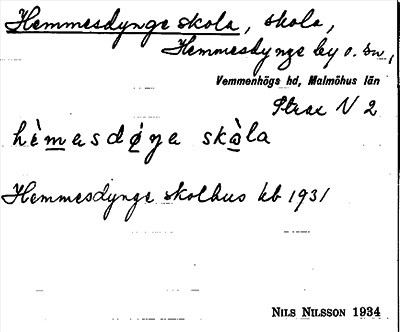 Hemmesdynge skola, skola,
Hemmesdynge by o. sn,
Vemmenhögs hd, Malmöhus län
Strax N 2
hèmasdøya skàla
Hemmesdynge skolhus kb 1931
NILS NILSSON 1934